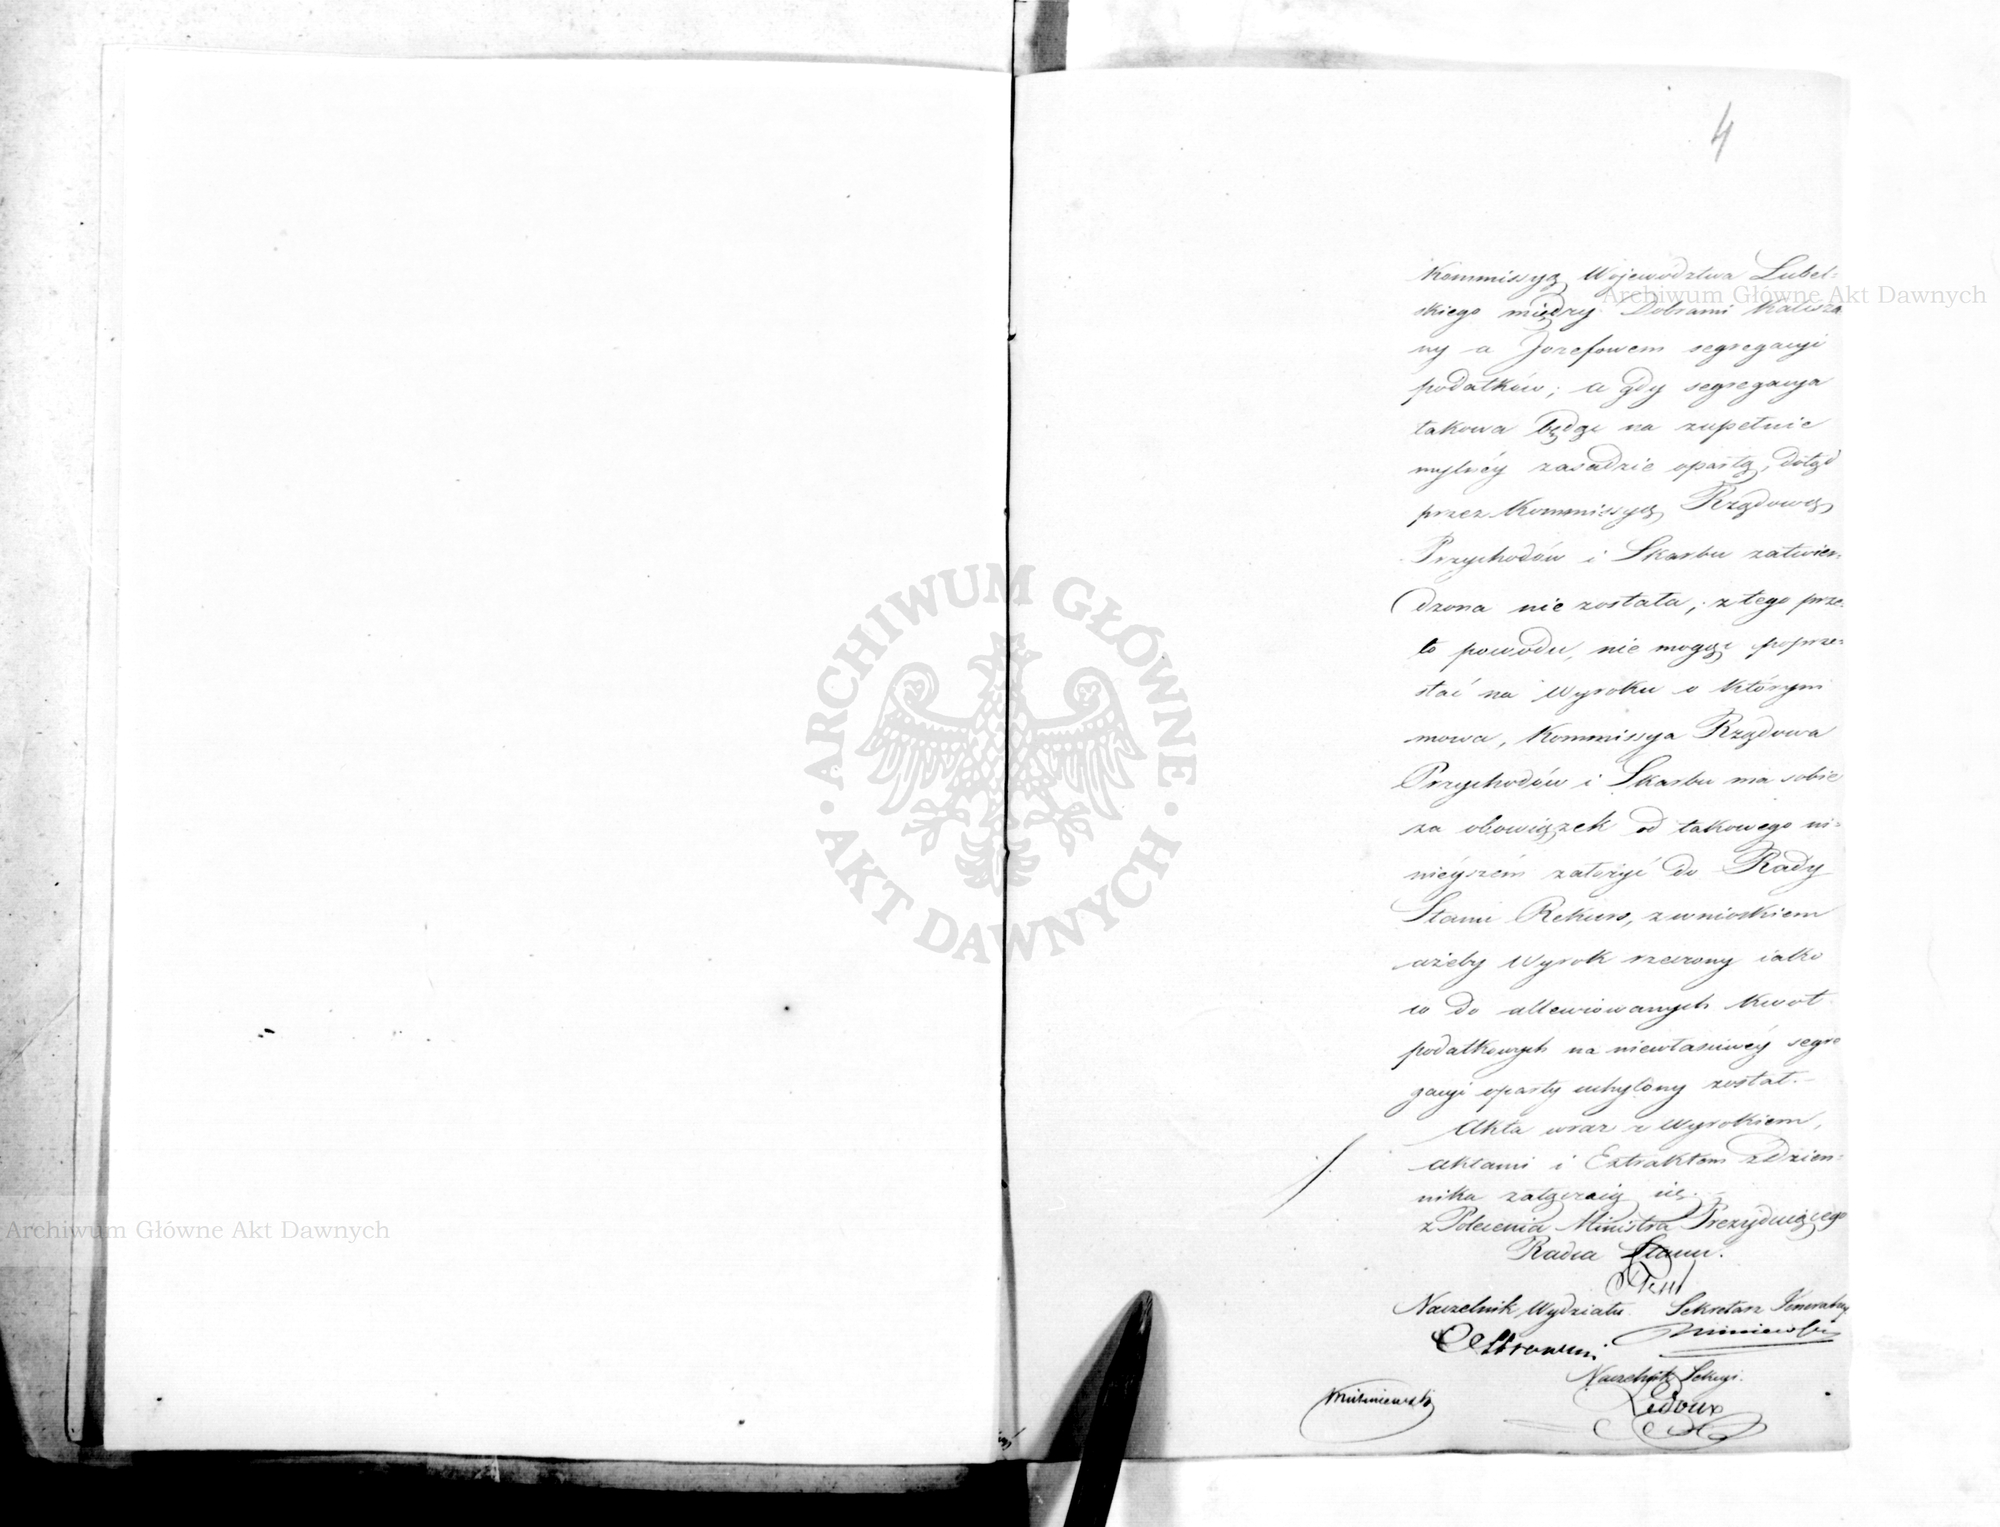 4
Kommissyą Województwa Lubel=
skiego między Dobrami Kalisza
ny a Jozefowem segregacyi
podatków; a gdy segregacya
takowa będąc na zupełnie
mylnéy zasadzie opartą, dotąd
przez Kommissyą Rządową
Przychodów i Skarbu zatwier=
dzona nie została, z tego prze=
to powodu, nie mogąc poprze=
stać na Wyroku o którym
mowa, Kommissya Rządowa
Przychodów i Skarbu ma sobie
za obowiązek od takowego ni=
niéyszém założyć do Rady
Stanu Rekurs, z wnioskiem
ażeby Wyrok rzeczony iako
co do allewiowanych kwot
podatkowych na niewłaściwéy segre
gacyi oparty uchylony został.—
Akta wraz z Wyrokiem,
aktami i Extraktem z Dzien=
nika załączaią się.—
z Polecenia Ministra Prezyduiącego
Radca Stanu.
Naczelnik Wydziału. Sekretarz Jeneralny
Naczelnik Sekcyi.
Ledoux
Archiwum Główne Akt Dawnych
ARCHIWUM GŁÓWNE
AKT DAWNYCH
Archiwum Główne Akt Dawnych